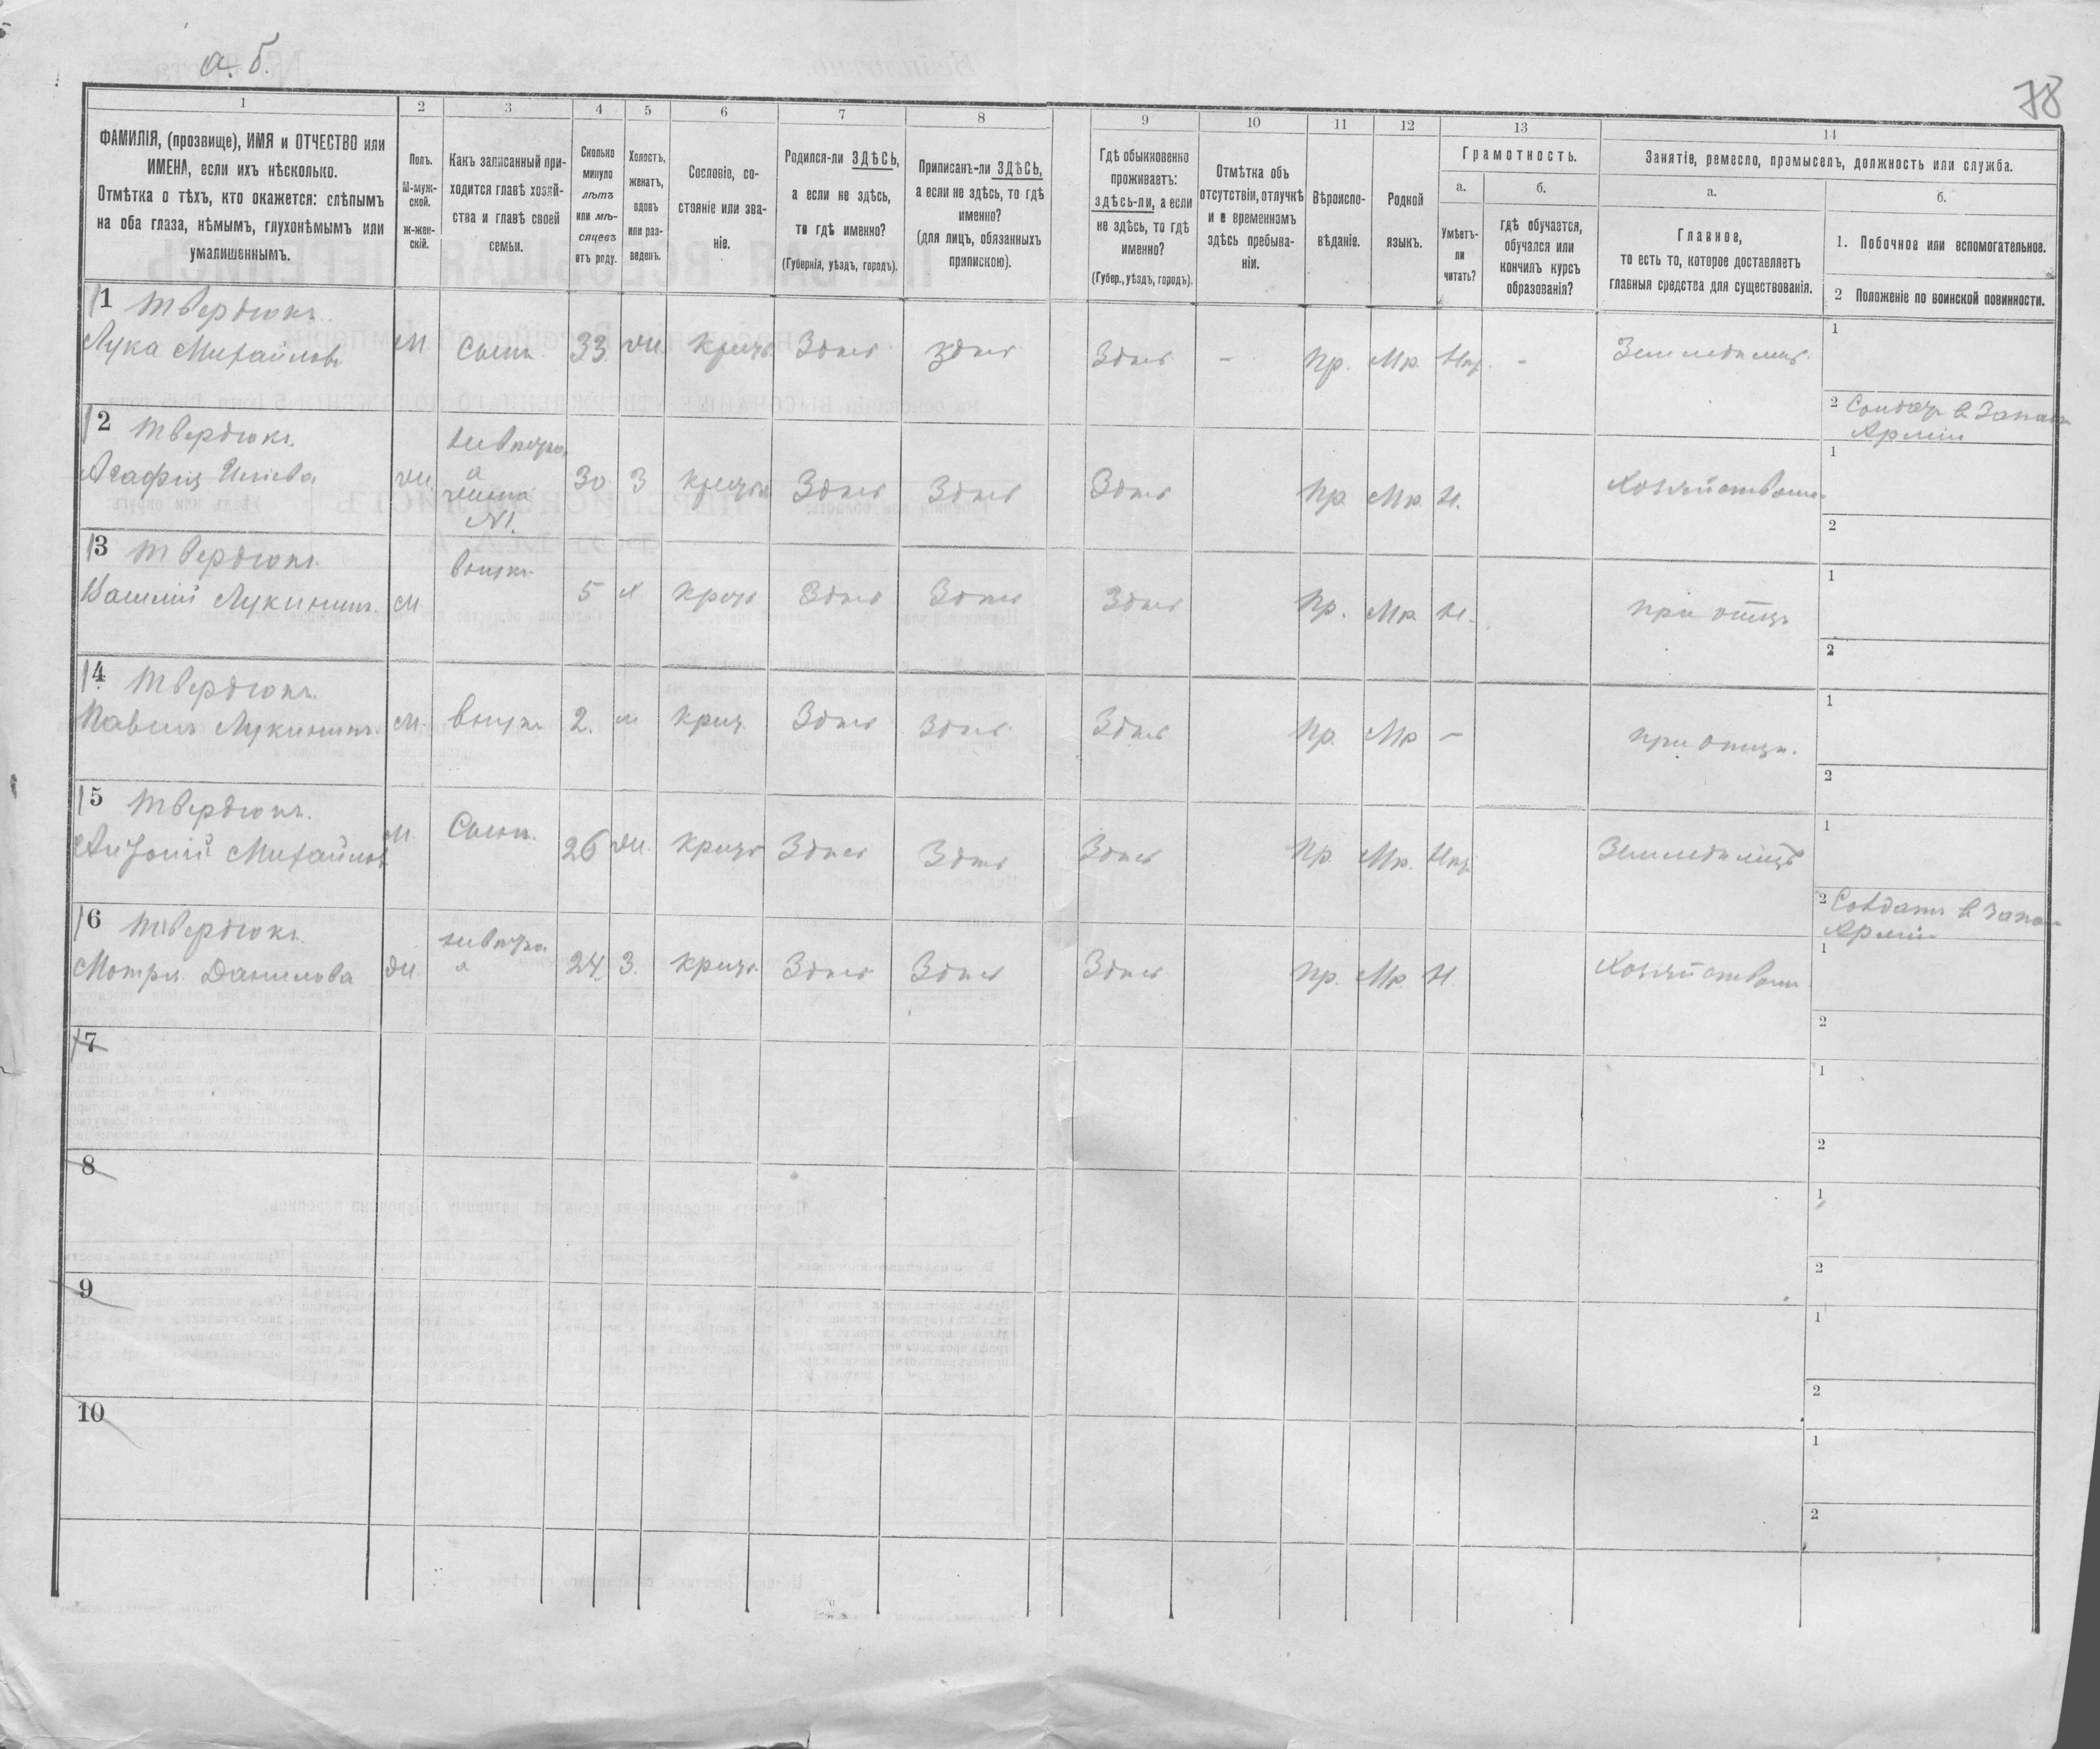 а. б.
78
1 2 3 4 5 6 7 8 9 10 11 12 13 14
ФАМИЛІЯ, (прозвище), ИМЯ и ОТЧЕСТВО или
ИМЕНА, если ихъ нѣсколько.
Отмѣтка о тѣхъ, кто окажется: слѣпымъ
на оба глаза, нѣмымъ, глухонѣмымъ или
умалишеннымъ.
Полъ.
М-муж-
ской.
ж-жен-
скій.
Какъ записанный при-
ходится главѣ хозяй-
ства и главѣ своей
семьи.
Сколько
минуло
лѣтъ
или мѣ-
сяцевъ
отъ роду.
Холостъ,
женатъ,
вдовъ
или раз-
веденъ.
Сословіе, со-
стояніе или зва-
ніе.
Родился-ли ЗДѢСЬ,
а если не здѣсь,
то гдѣ именно?
(Губернія, уѣздъ, городъ).
Приписанъ-ли ЗДѢСЬ,
а если не здѣсь, то гдѣ
именно?
(для лицъ, обязанныхъ
припискою).
Гдѣ обыкновенно
проживаетъ:
здѣсь-ли, а если
не здѣсь, то гдѣ
именно?
(Губер., уѣздъ, городъ).
Отмѣтка объ
отсутствіи, отлучкѣ
и о временномъ
здѣсь пребыва-
ніи.
Вѣроиспо-
вѣданіе.
Родной
языкъ.
Грамотность.
а.
Умѣетъ-
ли
читать?
б.
гдѣ обучается,
обучался или
кончилъ курсъ
образованія?
Занятіе, ремесло, промыселъ, должность или служба.
а.
Главное,
то есть то, которое доставляетъ
главныя средства для существованія.
б.
1. Побочное или вспомогательное.
2 Положеніе по воинской повинности.
11 Твердюкъ
Лука Михайловъ М Сынъ 33 ж. крест. Здѣсь здѣсь Здѣсь - пр. Мр. Нгр. - Земледѣлецъ
1
2 Солдатъ в Запасѣ
Арміи
12 Твердюкъ
Агафия Ильева ж. невѣстка
а
жена
N1. 30 З крестья Здѣсь Здѣсь Здѣсь пр. Мр. Н. Хозяйствомъ
1
2
13 Твердюкъ
Василій Лукичинъ. М внукъ 5 х крест Здѣсь Здѣсь Здѣсь пр. Мр. Н. при отцѣ
1
2
14 Твердюкъ
Павелъ Лукичинъ. М. внукъ 2. х крест. Здѣсь Здѣсь Здѣсь пр. Мр - при отцѣ.
1
2
15 Твердюкъ.
Антоній Михайловъ М. Сынъ. 26 ж. крест Здѣсь Здѣсь Здѣсь пр. Мр. Нгр. Земледѣлецъ
1
2 Солдатъ в Запасѣ
Арміи
16 Твердюкъ
Мотря Данилова ж. невѣстка
а 24. З. крест. Здѣсь Здѣсь Здѣсь пр. Мр. Н. Хозяйствомъ
1
2
17
1
2
8
1
2
9
1
2
10
1
2